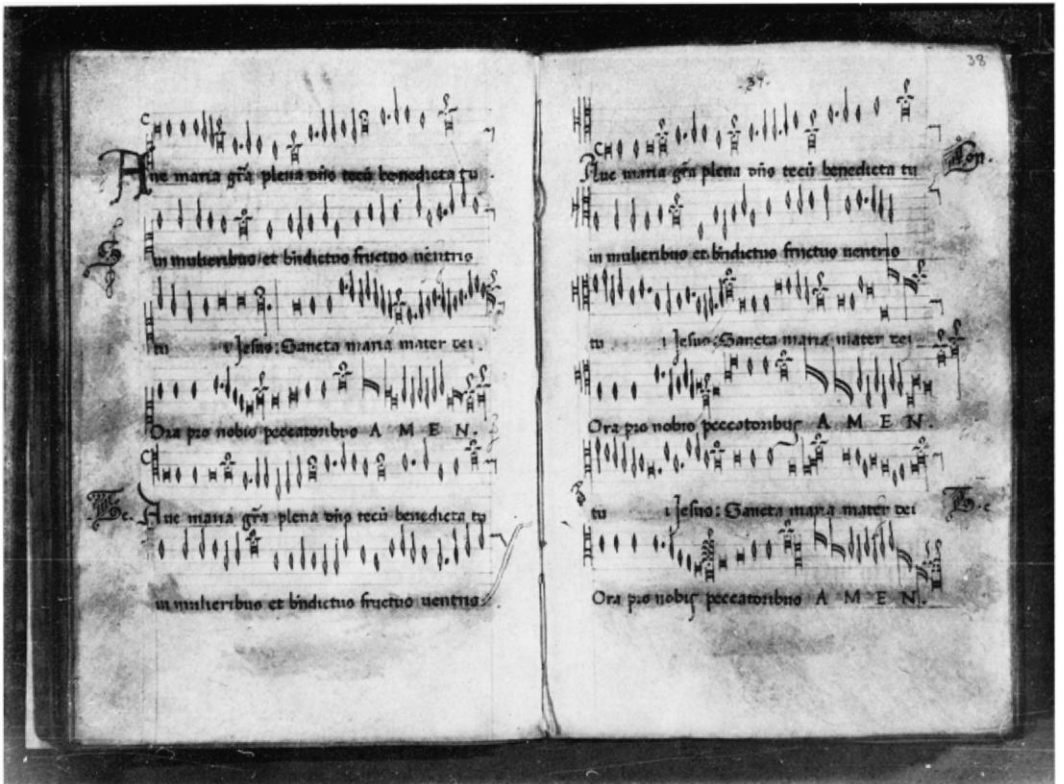 Aue maria gr̃a plena dñs tecũ benedicta tu
in mulieribus et bñdictus fructus uentris
tu i Jesus: Sancta maria mater dei.
Ora pro nobis peccatoribus A M E N.
Aue maria gr̃a plena dñs tecũ benedicta tu
in mulieribus et bñdictus fructus uentris
38
37
Aue maria gr̃a plena dñs tecũ benedicta tu
in mulieribus et bñdictus fructus uentris
tu i Jesus: Sancta maria mater dei
Ora pro nobis peccatoribus A M E N.
tu i Jesus: Sancta maria mater dei
Ora pro nobis peccatoribus A M E N.